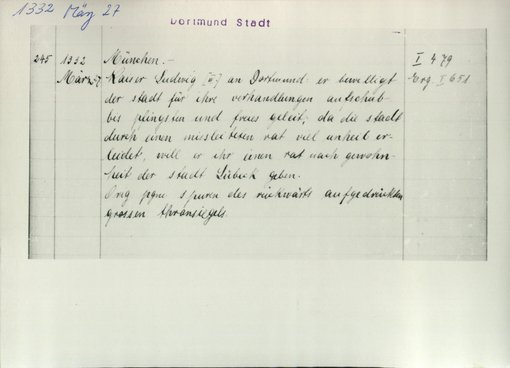 1332 März 27
Dortmund Stadt
245 1332 München.- I 479
März 27 Kaiser Ludwig [IV] an Dortmund: er bewilligt Erg I 651
der stadt für ihre verhandlungen aufschub
bis pfingsten und freies geleit; da die stadt
durch einen missleiteten rat viel unheil er-
leidet, will er ihr einen rat nach gewohn-
heit der stadt Lübeck geben.
Orig pgm spuren des rückwärts aufgedrückten
grossen thronsiegels.